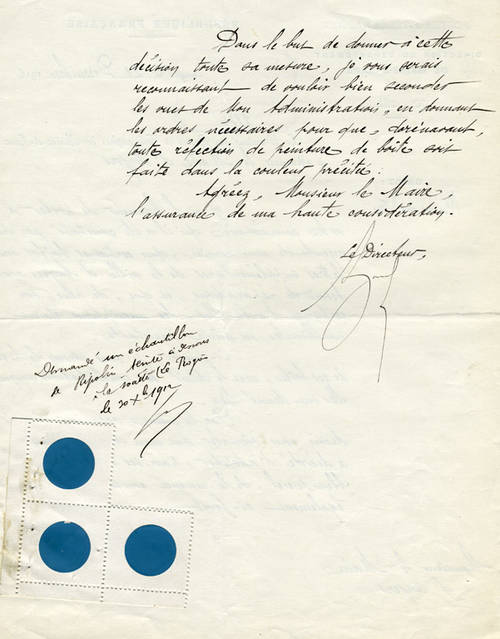 Dans le but de donner à cette
décision toute sa mesure, je vous serais
reconnaissant de vouloir bien seconder
les vues de mon Administration, en donnant
les ordres nécessaires pour que, dorénavant,
toute réfection de peinture de boîte soit
faite dans la couleur précitée.
Agréez, Monsieur le Maire,
l'assurance de ma haute considération.
Le Directeur,
Demandé un échantillon
de Ripolin teinté à
à la société Le Ripolin
le 20 Xbre 1912
RÉPUBLIQUE FRANÇAISE